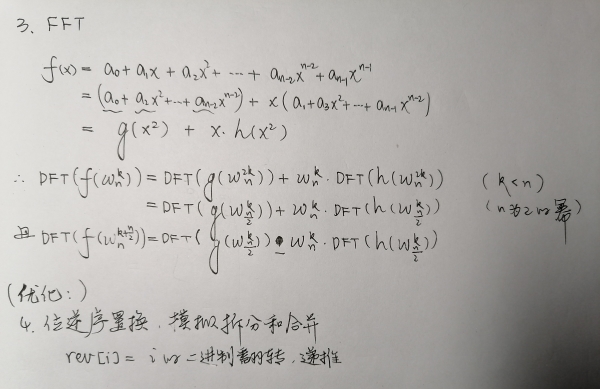 3. FFT
f(x) = a₀ + a₁x + a₂x² + ⋯ + aₙ₋₂xⁿ⁻² + aₙ₋₁xⁿ⁻¹
= (a₀ + a₂x² + ⋯ + aₙ₋₂xⁿ⁻²) + x(a₁ + a₃x² + ⋯ + aₙ₋₁xⁿ⁻²)
= g(x²) + x·h(x²)
∴ DFT(f(ωₙᵏ)) = DFT(g(ωₙ²ᵏ)) + ωₙᵏ · DFT(h(ωₙ²ᵏ)) (k<n)
= DFT(g(ω_{n/2}^k)) + ωₙᵏ · DFT(h(ω_{n/2}^k)) (n为2的幂)
且 DFT(f(ω_n^{k+n/2})) = DFT(g(ω_{n/2}^k)) - ωₙᵏ · DFT(h(ω_{n/2}^k))
(优化:)
4. 位逆序置换, 模拟拆分和合并
rev[i] = i的二进制翻转, 递推